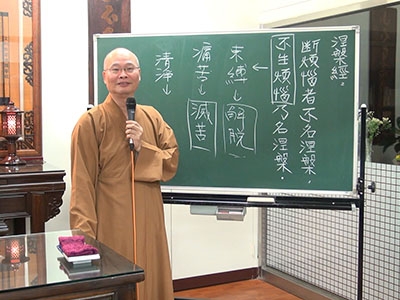 涅槃經：
断煩惱者不名涅槃，
不生煩惱乃名涅槃。
束縛→解脱
痛苦→滅苦
清淨→